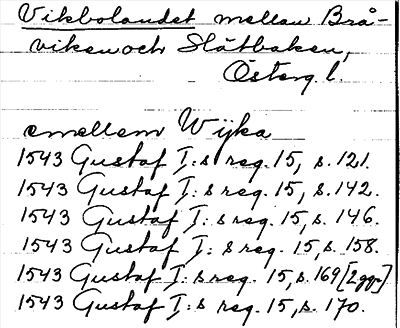 Vikbolandet mellan Brå-
viken och Slätbaken,
Österg. l.
emellem Wijka
1543 Gustaf I:s reg. 15, s. 121.
1543 Gustaf I:s reg. 15, s. 142.
1543 Gustaf I:s reg. 15, s. 146.
1543 Gustaf I:s reg. 15, s. 158.
1543 Gustaf I:s reg. 15, s. 169 [2 ggr]
1543 Gustaf I:s reg. 15, s. 170.